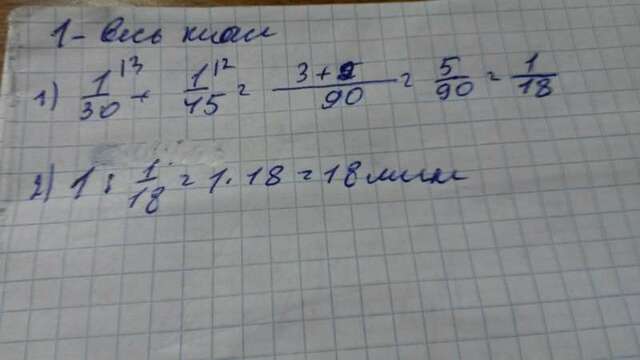 1 - весь класс
1) 1/30 |3 + 1/45 |2 = 3+2/90 = 5/90 = 1/18
2) 1 : 1/18 = 1 · 18 = 18 мин